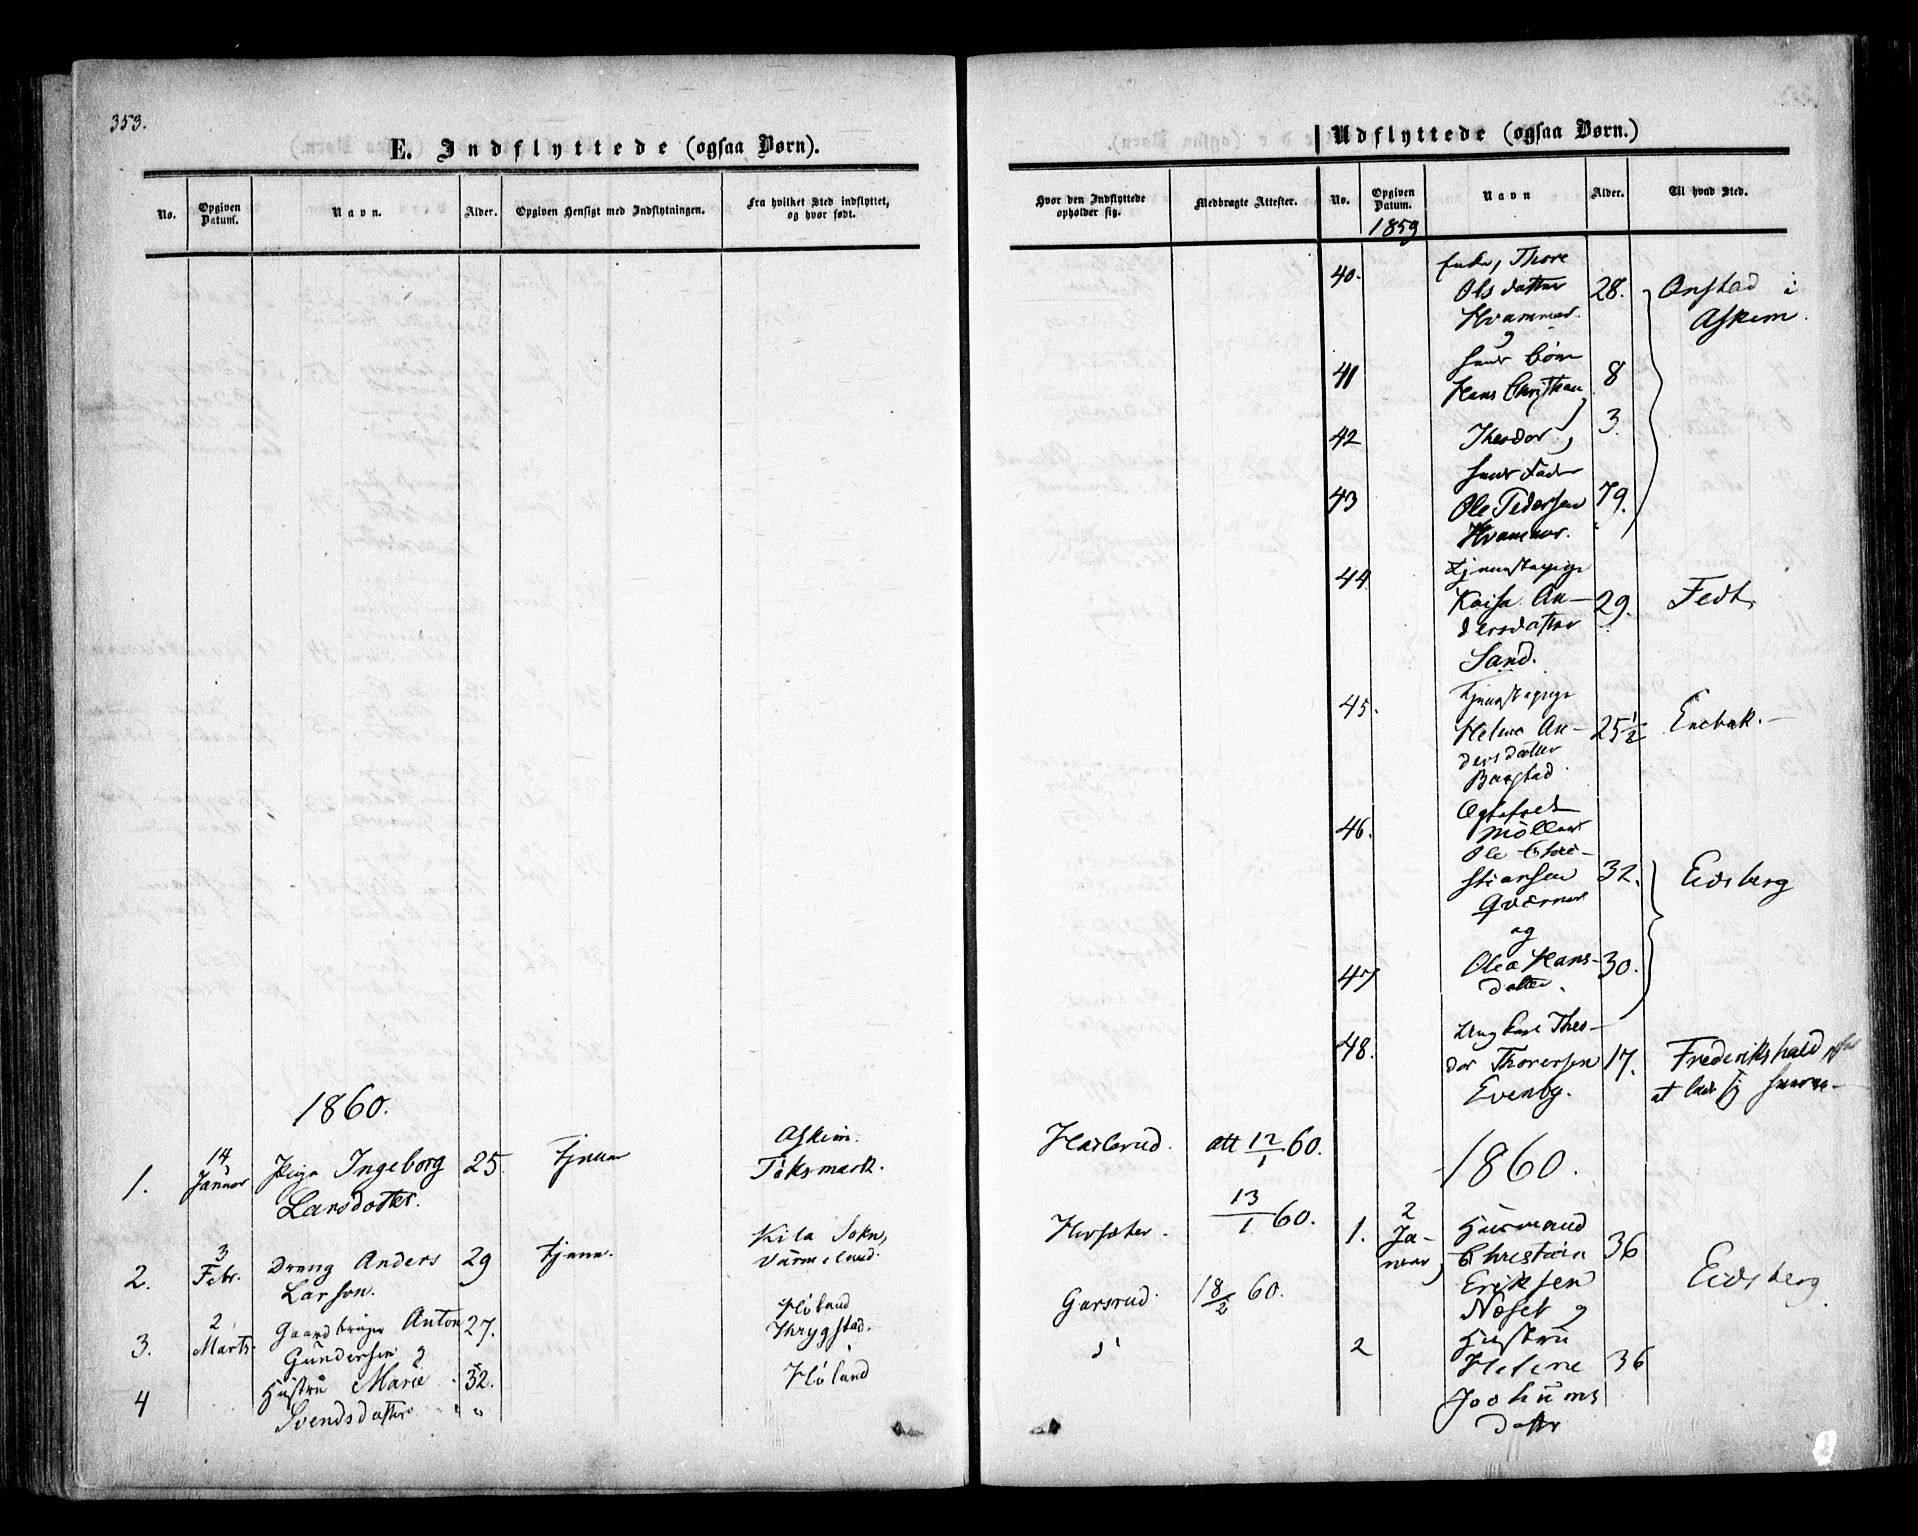 353.
E. Indflyttede (ogsaa Børn).
No.
Opgiven Datum.
Navn.
Alder.
Opgiven Hensigt med Indflytningen.
Fra hvilket Sted indflyttet, og hvor født.
1860.
1.
14 Januar
Pige Ingeborg
Larsdatter.
25.
tjene
Askim.
Töksmark.
2.
3 Febr.
Dreng Anders
Larson.
29
tjene.
Kila Sokn,
Värmeland.
3.
2 Marts
Gaardbruger Anton
Gundersen og
27.
Höland
Thrygstad.
4
Hustru Marie
Svendsdatter
32.
Höland
Udflyttede (ogsaa Børn.)
Hvor den Indflyttede opholder sig.
Medbragte Attester.
No.
Opgiven Datum.
Navn
Alder.
Til hvad Sted.
1859
40.
Enke, Thore
Olsdatter
Hvammer
28.
Onstad i
Askim.
og
41
hendes Børn
Hans Christian
8
42
Theodor,
3.
43
hendes Fader
Ole Pedersen
Hvammer.
79.
44
Tjenestepige
Kaisa An-
dersdatter
Sand.
29.
Fedt
45.
Tjenestepige
Helene An-
dersdatter
Bagstad
25 1/2
Enebak.
46.
Møller
Ole Chri-
stiansen
Qværner
32.
Eidsberg
og
47
Olea Hans-
datter.
30.
48.
Ungkarl Theo-
dor Thoresen
Evenby.
17.
Frederikshald for
at lade sig
Haslerud.
att 12/1 60.
1860.
Hersæter.
13/1 60.
1.
2 Ja-
nuar
Husmand
Christian
Eriksen
Næset og
36
Eidsberg
Garsrud.
18/2 60.
2
Hustru
Helene
Jochums
datter
36